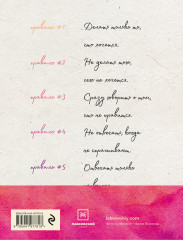 правило #1
Делать только то,
что хочется.
правило #2
Не делать того,
чего не хочется.
правило #3
Сразу говорить о том,
что не нравится.
правило #4
Не отвечать, когда
не спрашивают.
правило #5
Отвечать только
labkovskiy.com